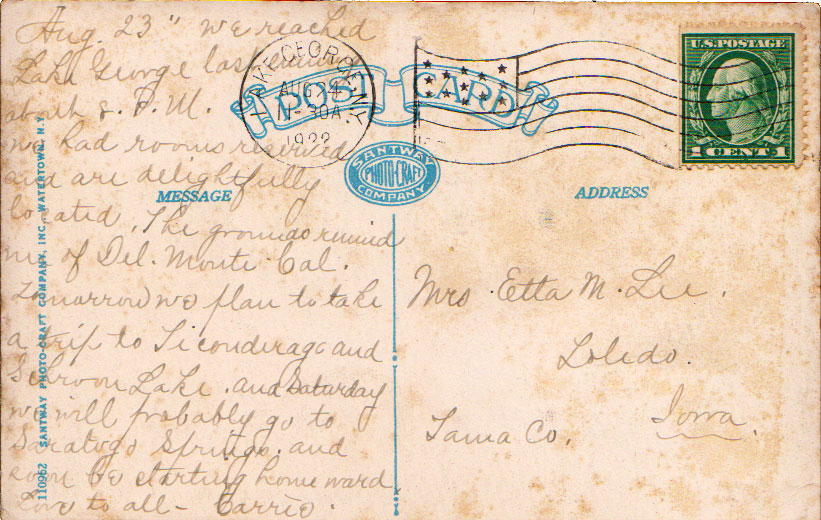 Aug. 23" we reached
Lake George last evening
about 8. P.M.
we had rooms reserved
and are delightfully
located. The grounds remind
me of Del. Monte Cal.
Tomorrow we plan to take
a trip to Ticonderago and
Schroon Lake. and Saturday
we will probably go to
Saratogo Springs. and
soon be starting home ward
Love to all - Carrie.
LAKE GEORGE N.Y.
AUG 24
11-30A
1922
POST CARD
SANTWAY
PHOTO-CRAFT
COMPANY
MESSAGE
ADDRESS
U.S. POSTAGE
1 CENT 1
Mrs. Etta M. Lee.
Toledo.
Tama Co. Iowa.
110962 SANTWAY PHOTO-CRAFT COMPANY, INC., WATERTOWN, N.Y.